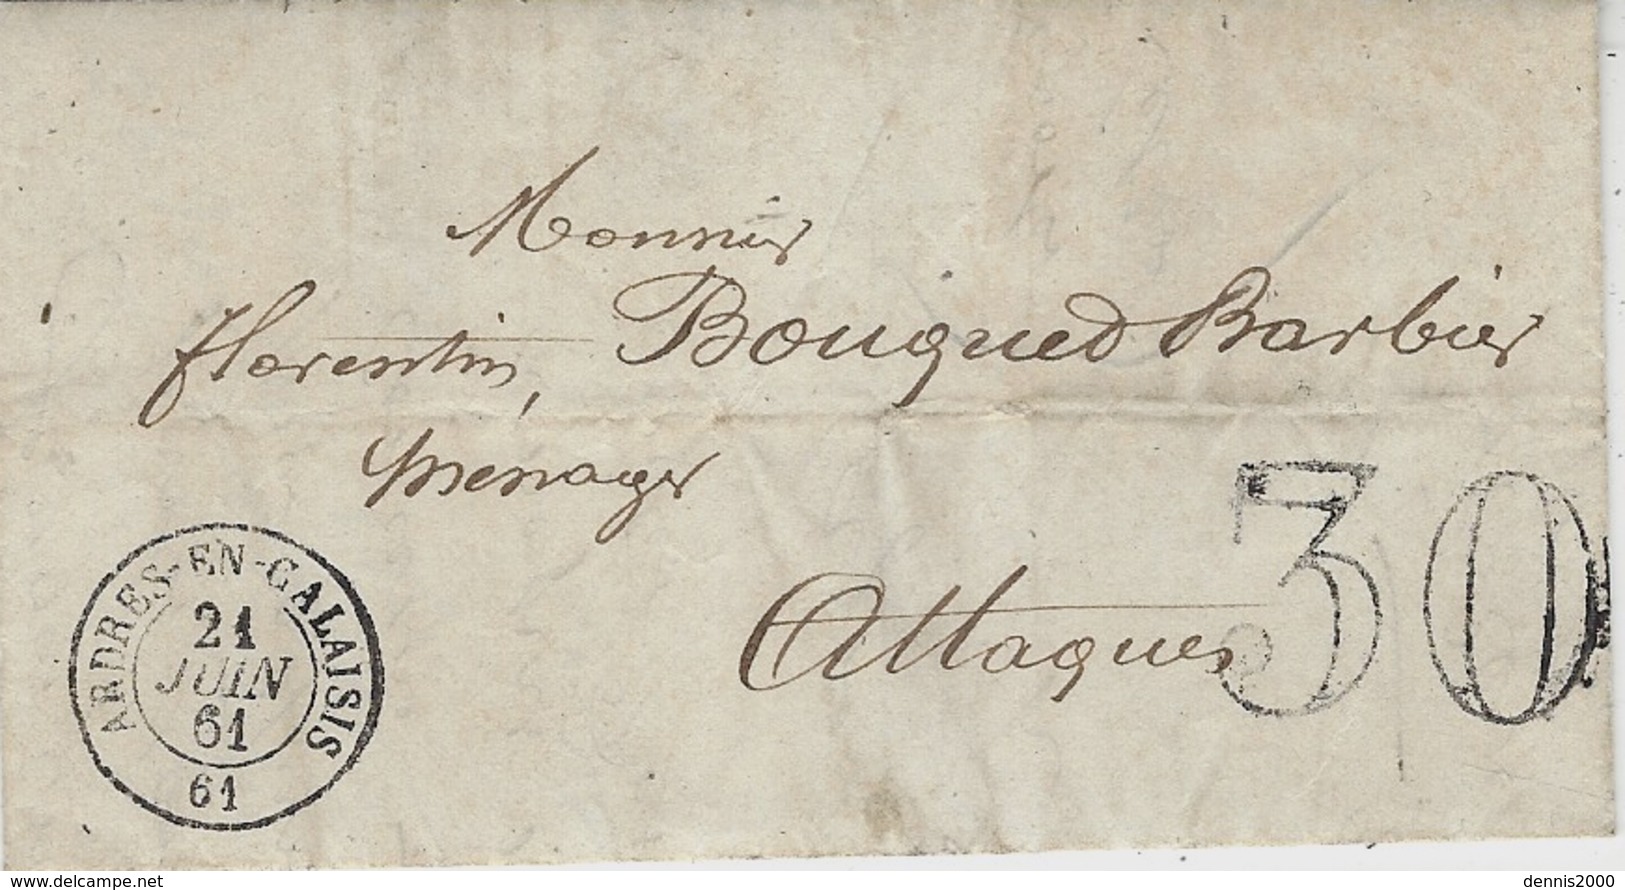 Monsieur
florentin, Bouqued Barbier
ménager
Attaques
30
ARDRES-EN-CALAISIS
21
JUIN
61
61
www.delcampe.net
dennis2000